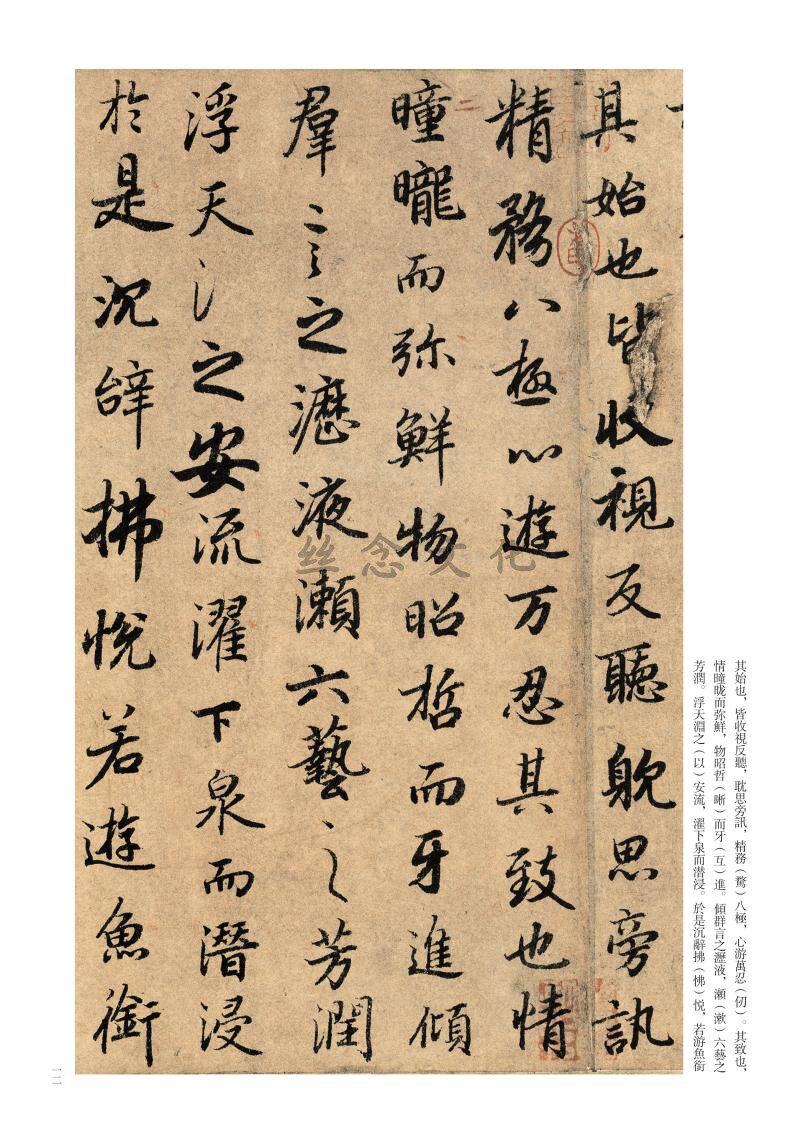 其始也皆收視反聽躭思旁訊
精務八極心遊万忍其致也情
曈曨而弥鮮物昭哲而牙進傾
羣言之瀝液瀨六藝之芳潤
浮天淵之安流濯下泉而潛浸
於是沉辝拂悅若遊魚銜
絲念文化
其始也，皆收視反聽，耽思旁訊，精務（騖）八極，心游萬忍（仞）。其致也，
情曈昽而弥鮮，物昭哲（晰）而牙（互）進。傾群言之瀝液，瀨（漱）六藝之
芳潤。浮天淵之（以）安流，濯下泉而潜浸。於是沉辭拂（怫）悦，若游魚銜
一二